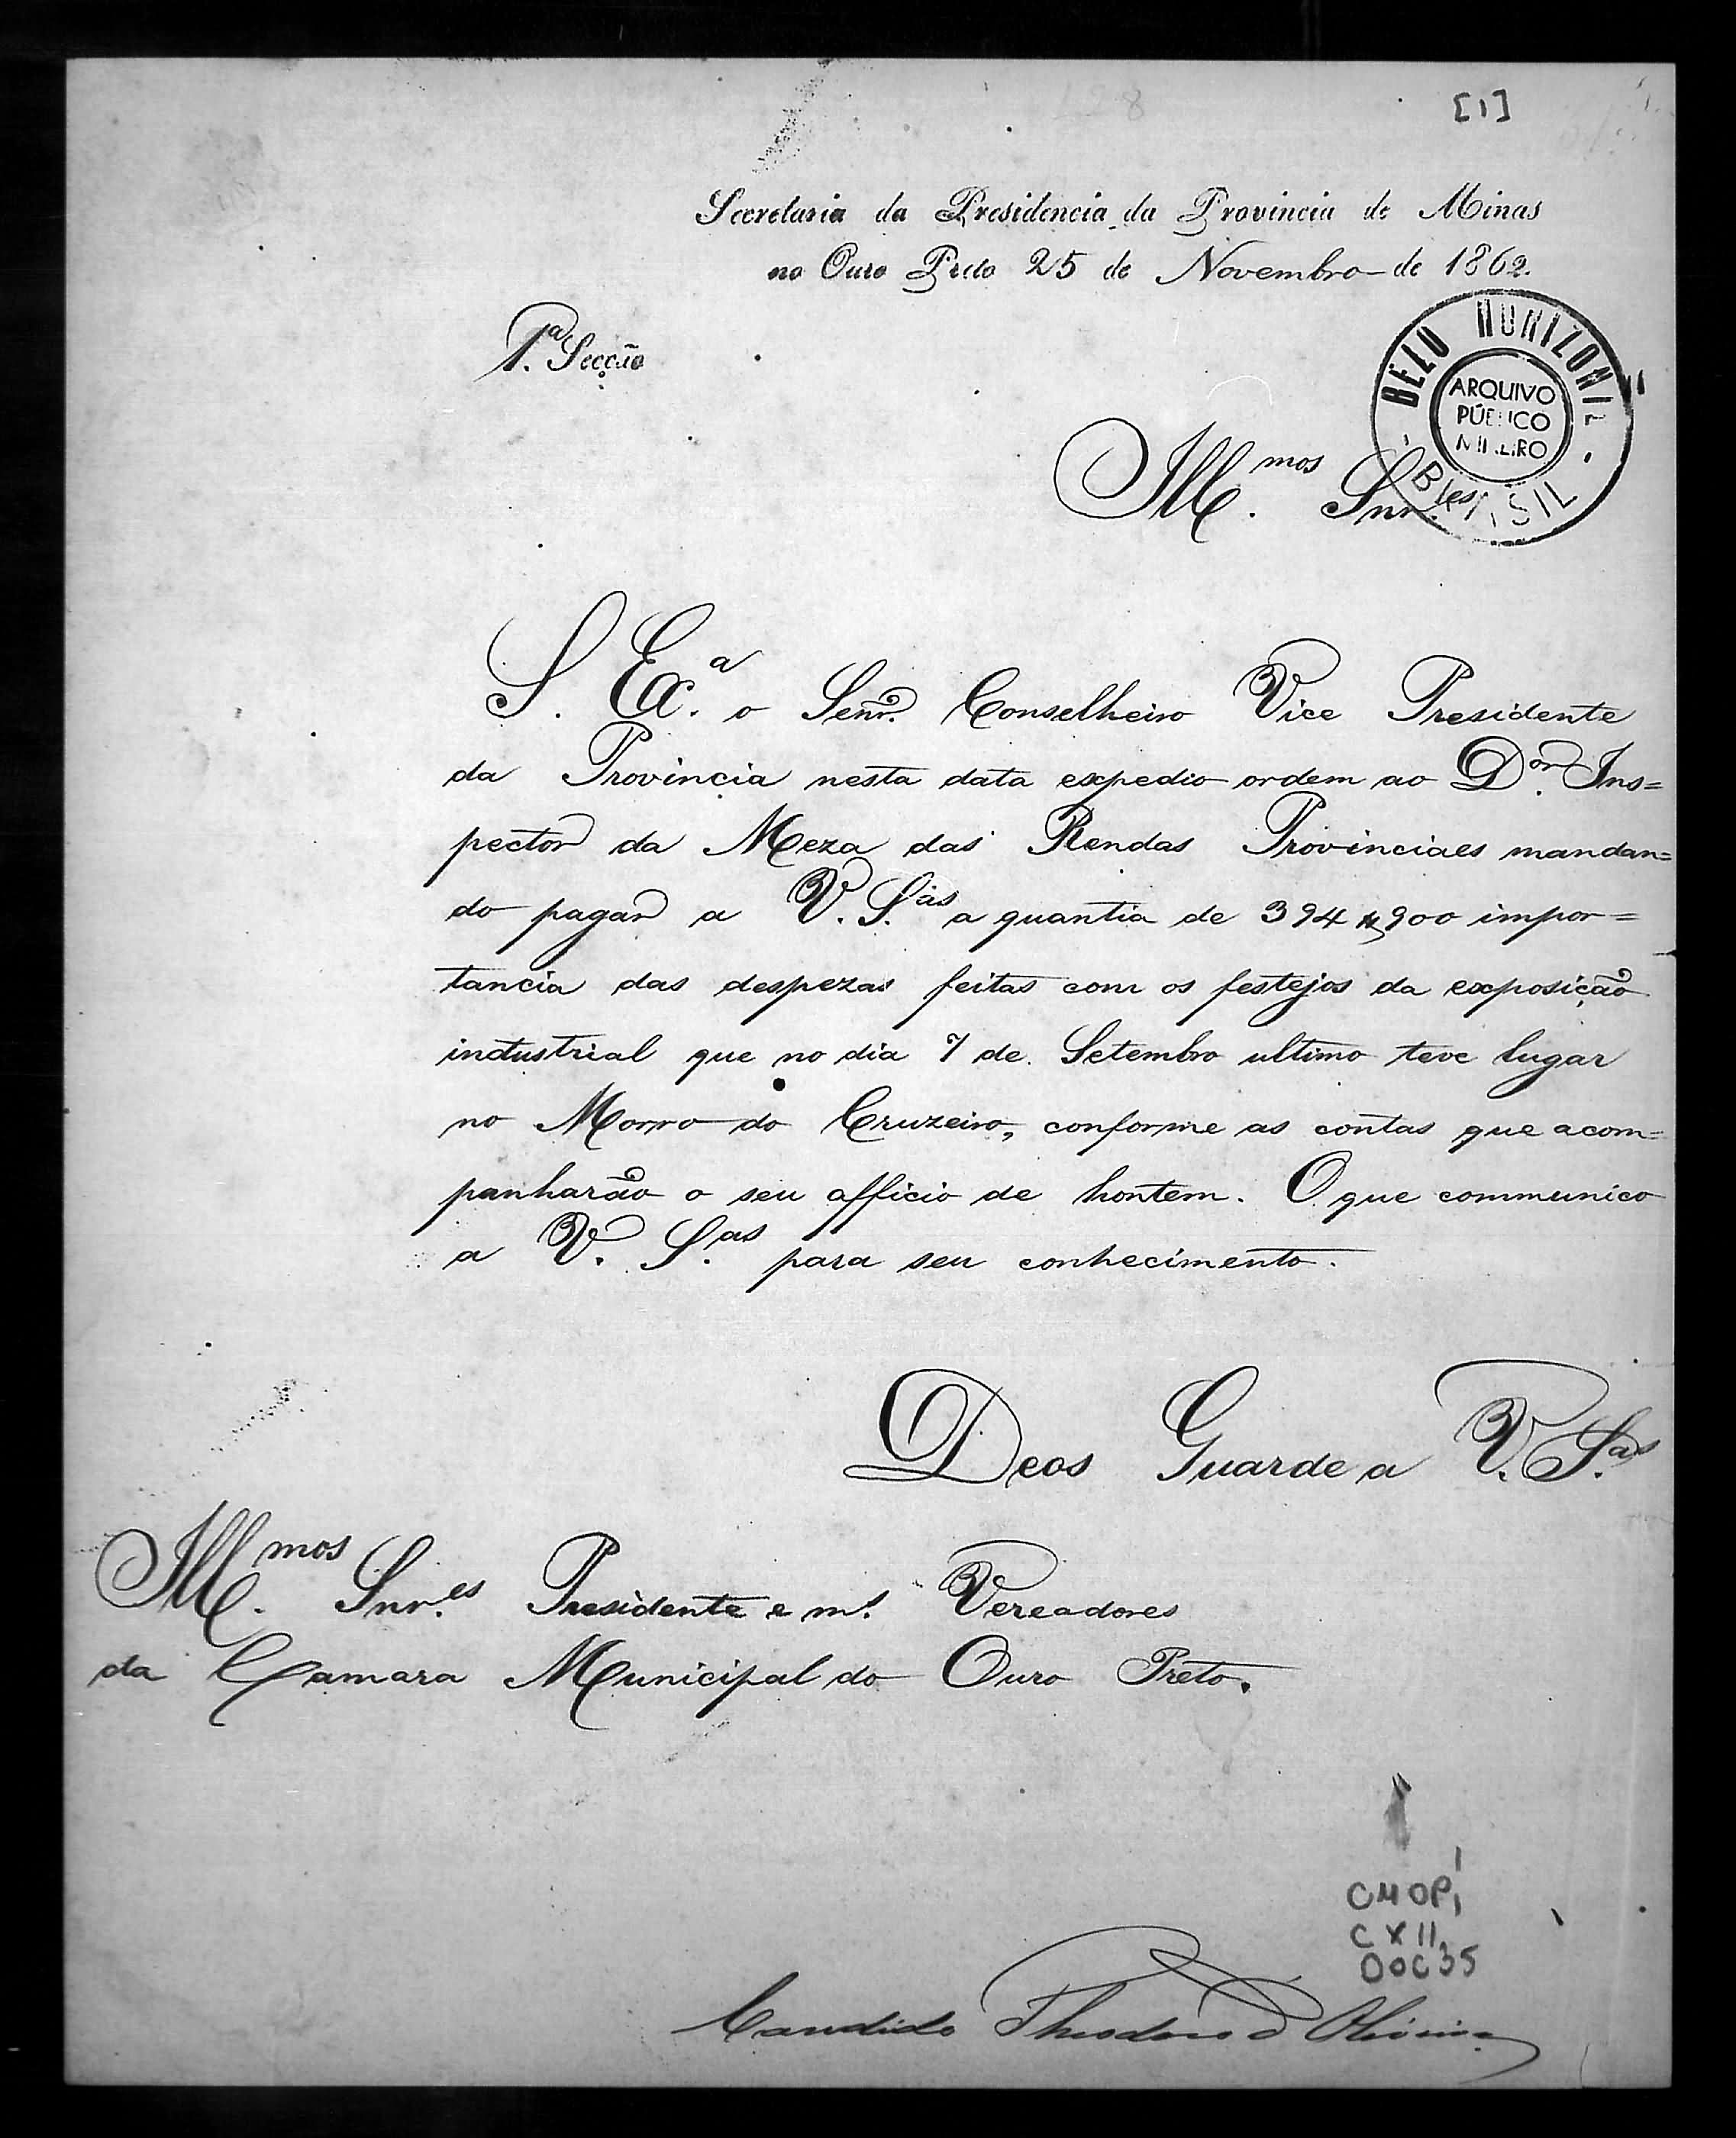 [1]
Secretaria da Presidencia da Provincia de Minas
no Ouro Preto 25 de Novembro de 1862.
1.ª Secção
BELO HORIZONTE
ARQUIVO
PÚBLICO
MINEIRO
BRASIL
Ill.mos Snr.es
S. Ex.ª o Senr. Conselheiro Vice Presidente
da Provincia nesta data expedio ordem ao D.or Ins=
pector da Meza das Rendas Provinciaes mandan=
do pagar a V. S.as a quantia de 394$900 impor=
tancia das despezas feitas com os festejos da exposição
industrial que no dia 7 de Setembro ultimo teve lugar
no Morro do Cruzeiro, conforme as contas que acom=
panharão o seu officio de hontem. O que communico
a V. S.as para seu conhecimento.
Deos Guarde a V. S.as
Ill.mos Snr.es Presidente e m.s Vereadores
da Camara Municipal do Ouro Preto.
CMOP,
CX 11,
DOC 35
Candido Theodoro d'Oliveira